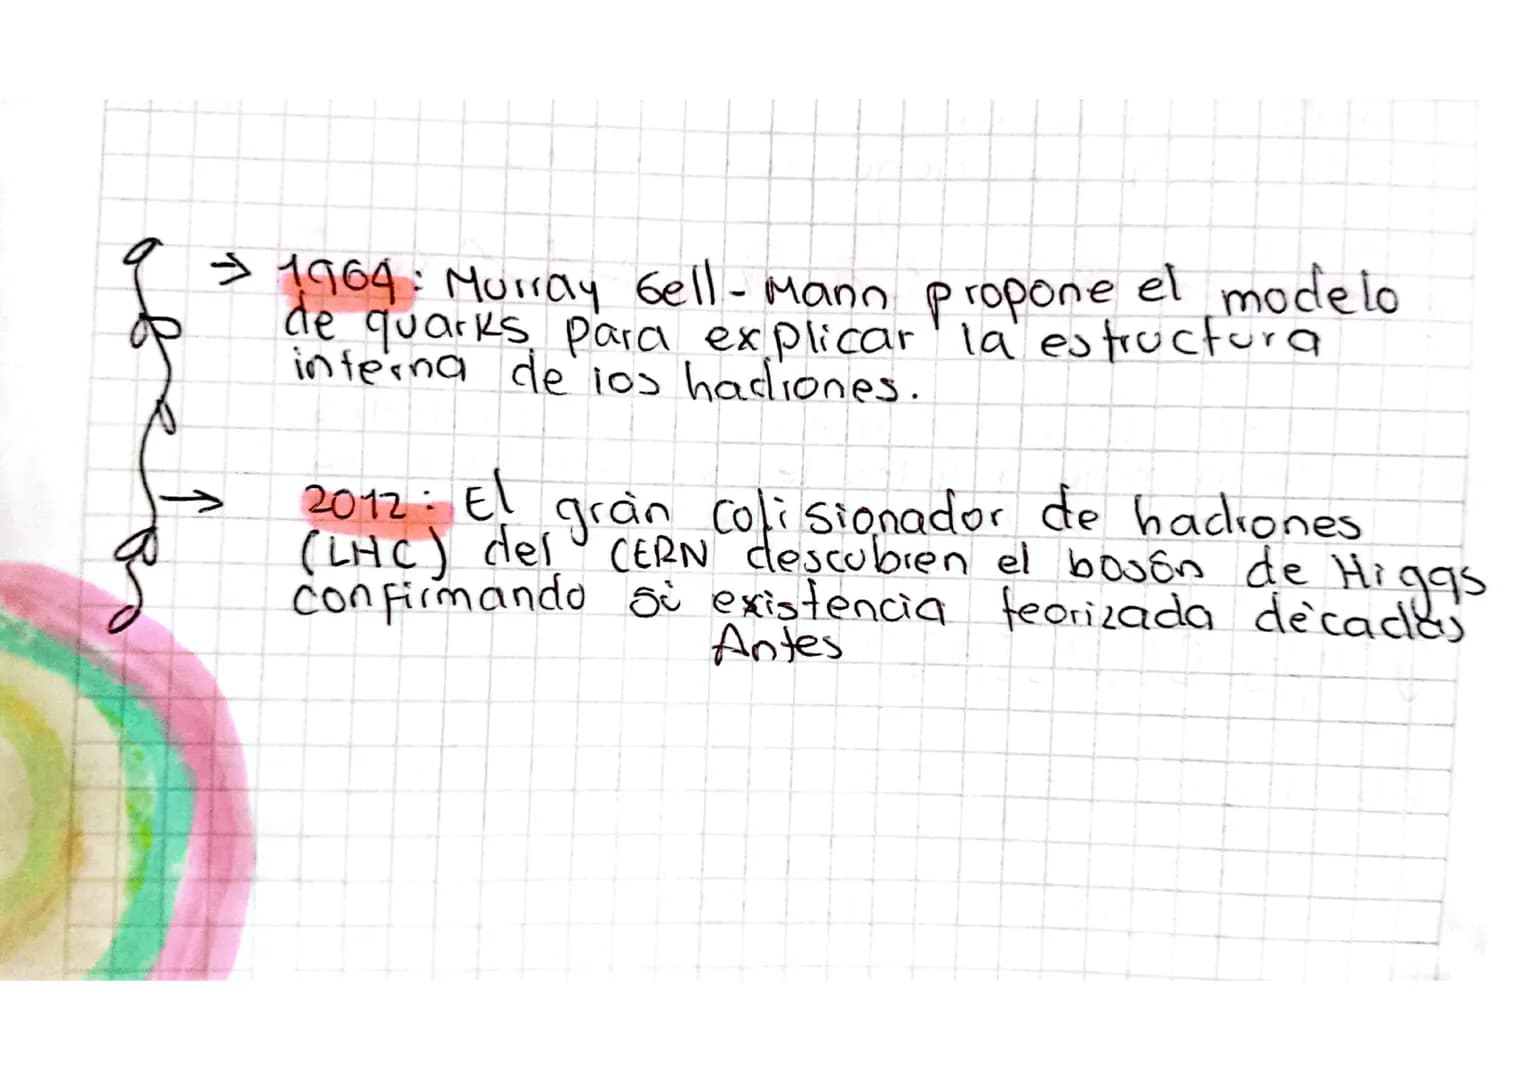 → 1964: Murray Gell-Mann propone el modelo
de quarks para explicar la estructura
interna de los hadrones.
→ 2012: El gràn colisionador de hadrones
(LHC) del CERN descubren el bosón de Higgs
confirmando si existencia teorizada dècadas
Antes